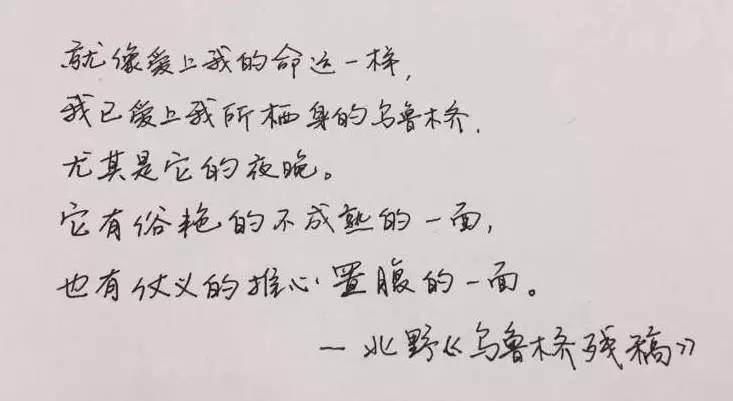 就像爱上我的命运一样，
我已爱上我所栖身的乌鲁木齐，
尤其是它的夜晚。
它有俗艳的不成熟的一面，
也有仗义的推心置腹的一面。
— 北野《乌鲁木齐残稿》